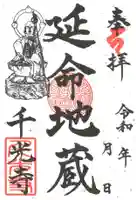 奉拝
令和 年 月 日
延命地蔵
千光寺